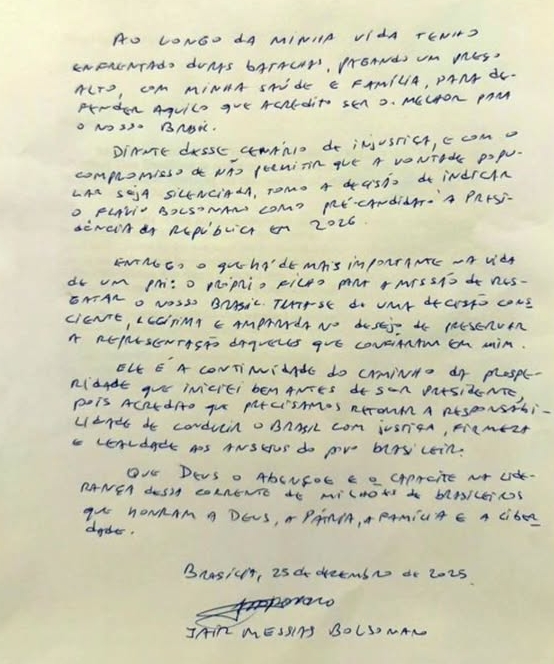 AO LONGO DA MINHA VIDA TENHO
ENFRENTADO DURAS BATALHAS, PAGANDO UM PREÇO
ALTO, COM MINHA SAÚDE E FAMÍLIA, PARA DE-
FENDER AQUILO QUE ACREDITO SER O MELHOR PARA
O NOSSO BRASIL.
DIANTE DESSE CENÁRIO DE INJUSTIÇA, E COM O
COMPROMISSO DE NÃO PERMITIR QUE A VONTADE POPU-
LAR SEJA SILENCIADA, TOMO A DECISÃO DE INDICAR
O FLÁVIO BOLSONARO COMO PRÉ-CANDIDATO À PRESI-
DÊNCIA DA REPÚBLICA EM 2026.
ENTREGO O QUE HÁ DE MAIS IMPORTANTE NA VIDA
DE UM PAI: O PRÓPRIO FILHO PARA A MISSÃO DE RES-
GATAR O NOSSO BRASIL. TRATA-SE DE UMA DECISÃO CONS
CIENTE, LEGÍTIMA E AMPARADA NO DESEJO DE PRESERVAR
A REPRESENTAÇÃO DAQUELES QUE CONFIARAM EM MIM.
ELE É A CONTINUIDADE DO CAMINHO DA PROSPE-
RIDADE QUE INICIEI BEM ANTES DE SER PRESIDENTE,
POIS ACREDITO QUE PRECISAMOS RETOMAR A RESPONSABI-
LIDADE DE CONDUZIR O BRASIL COM JUSTIÇA, FIRMEZA
E LEALDADE AOS ANSEIOS DO POVO BRASILEIR.
QUE DEUS O ABENÇOE E O CAPACITE NA LIDE-
RANÇA DESSA CORRENTE DE MILHÕES DE BRASILEIROS
QUE HONRAM A DEUS, A PÁTRIA, A FAMÍLIA E A LIBER
DADE.
BRASÍLIA, 25 DE DEZEMBRO DE 2025
JAIR MESSIAS BOLSONARO